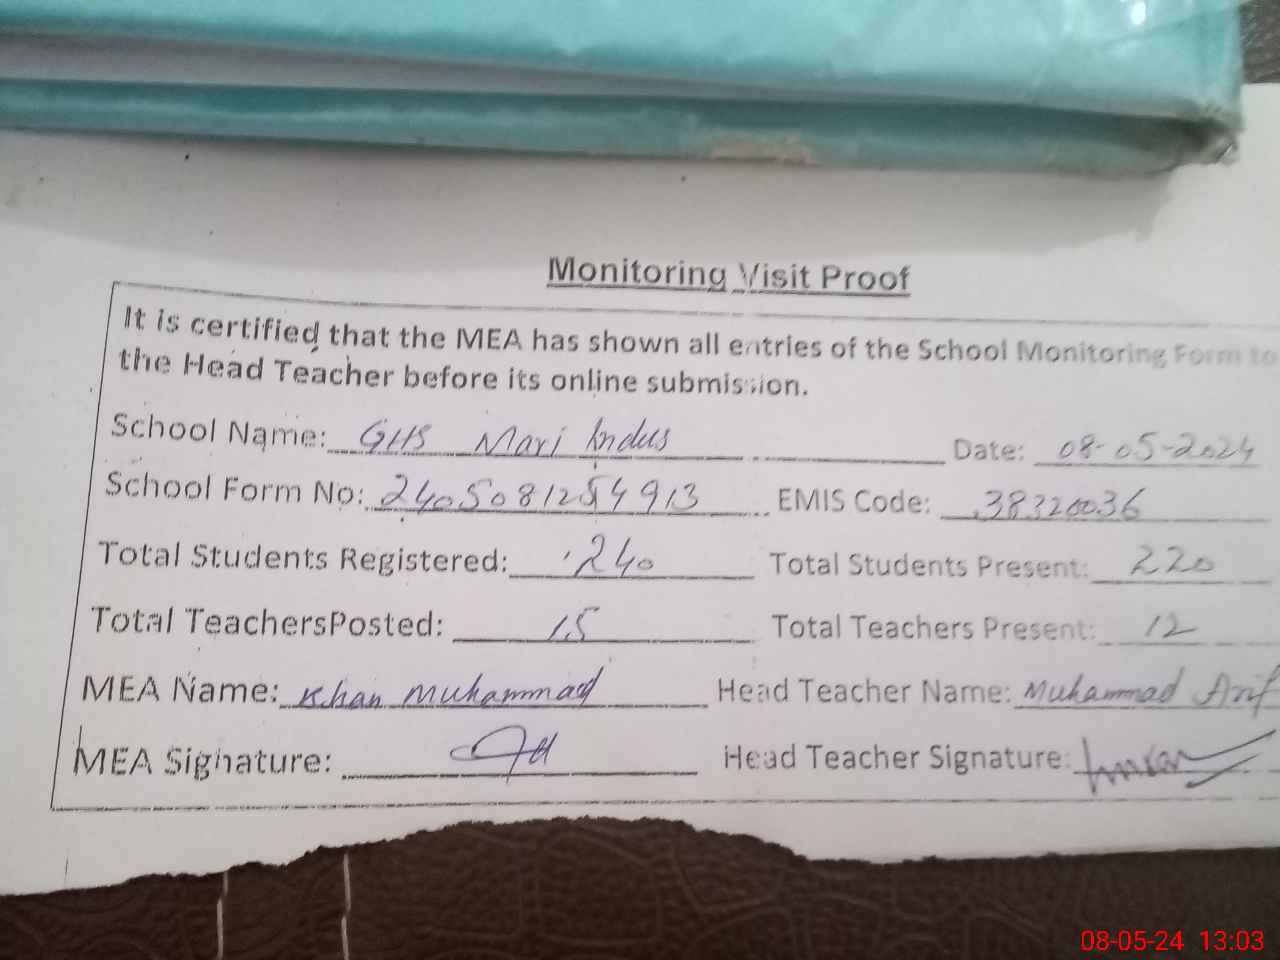 Monitoring Visit Proof
It is certified that the MEA has shown all entries of the School Monitoring Form to
the Head Teacher before its online submission.
School Name: GHS Mari Indus Date: 08-05-2024
School Form No: 2405081254913 EMIS Code: 38320036
Total Students Registered: 240 Total Students Present: 220
Total TeachersPosted: 15 Total Teachers Present: 12
MEA Name: Khan Muhammad Head Teacher Name: Muhammad Arif
MEA Signature: Head Teacher Signature: Imran
08-05-24 13:03